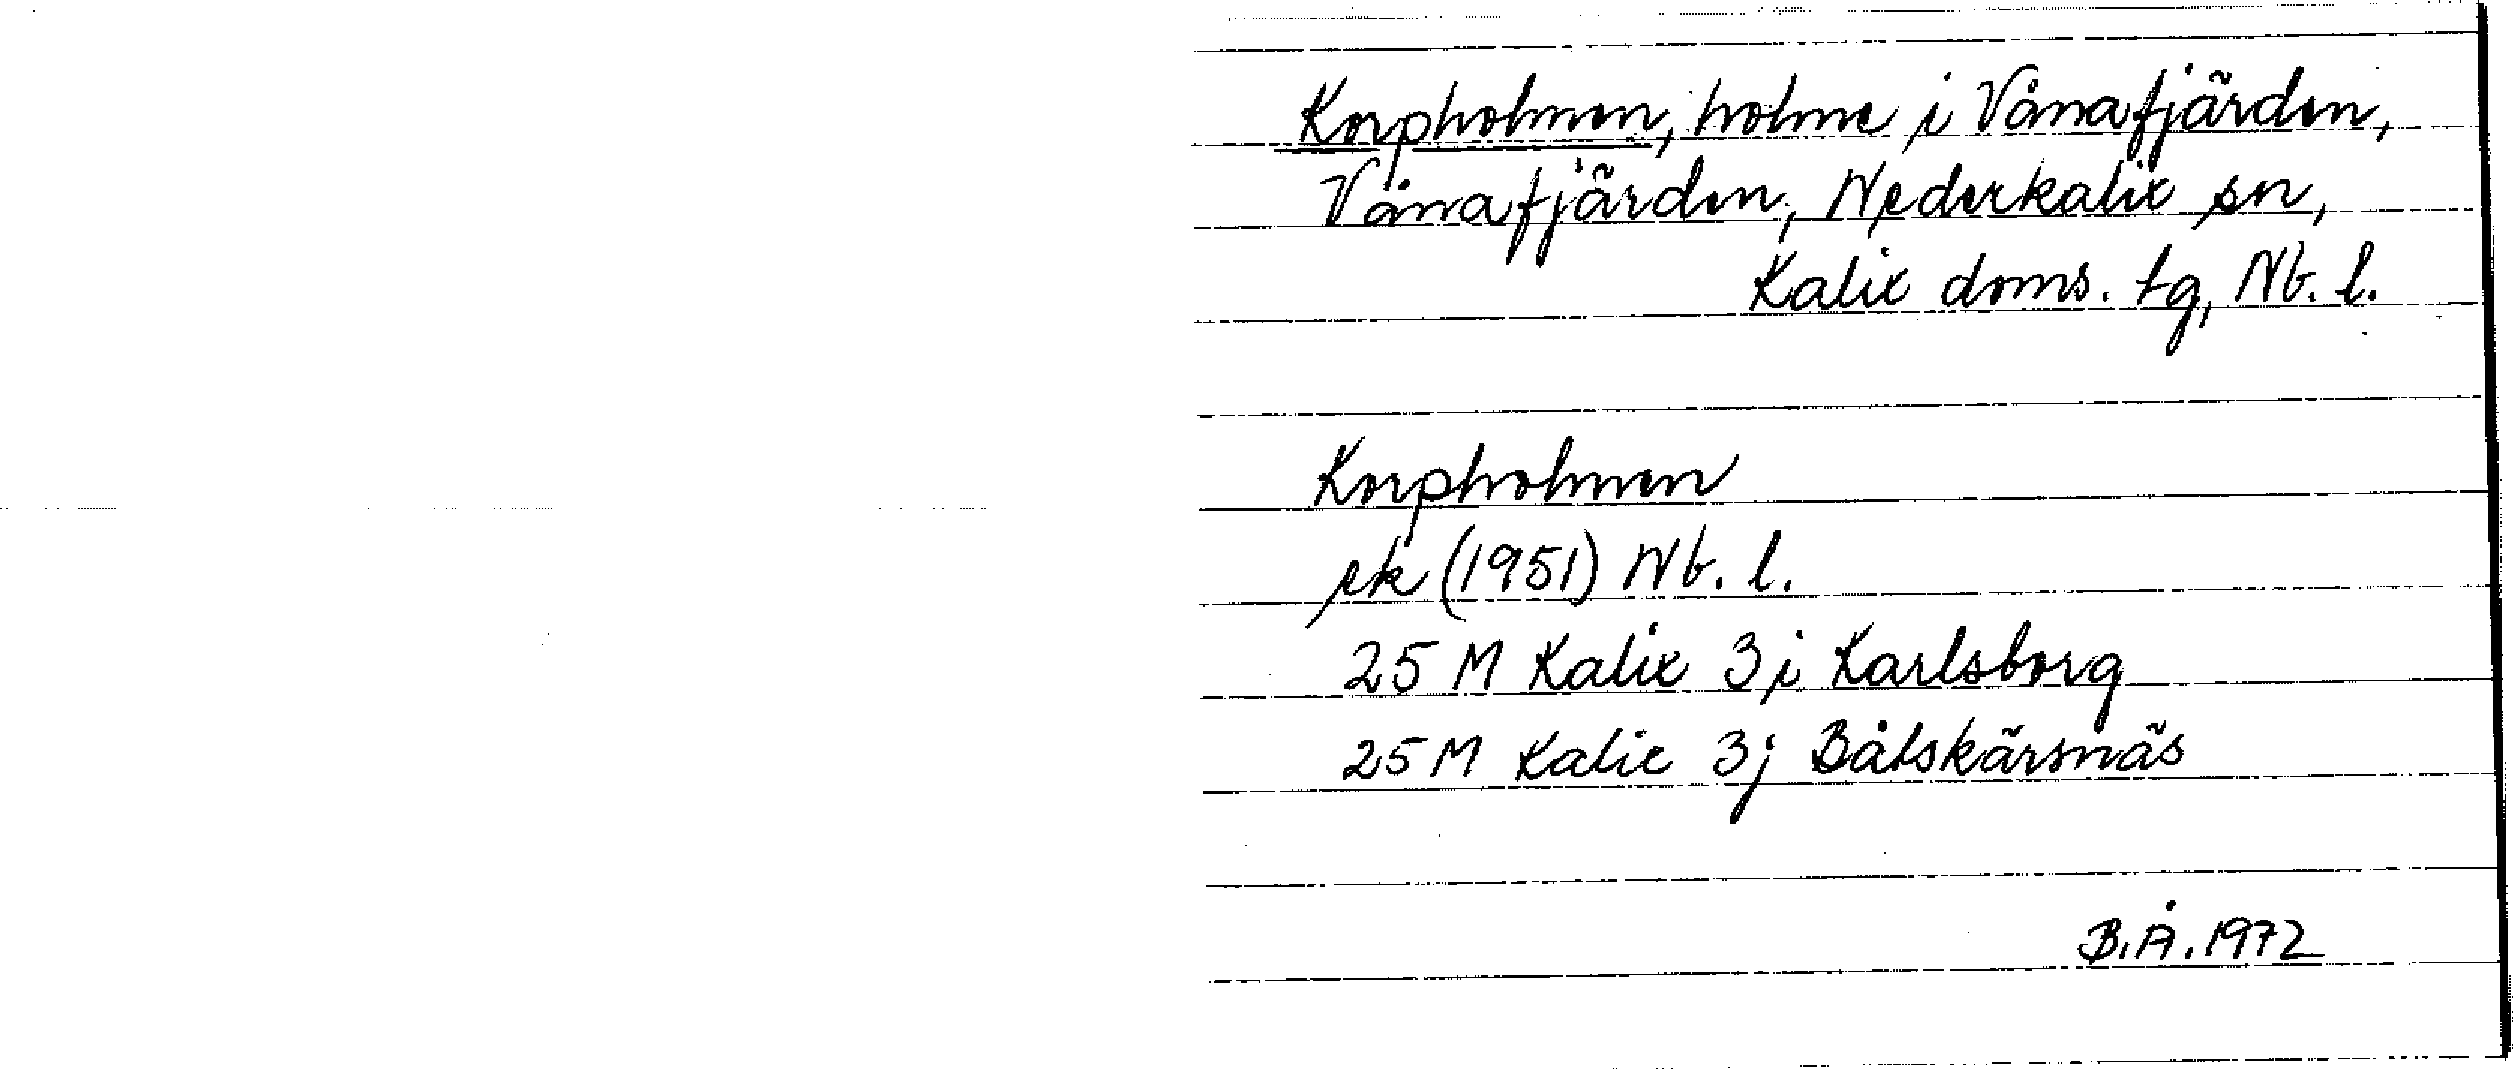 Korpholmen, holme i Vånafjärden,
Vånafjärden, Nederkalix sn,
Kalix doms. tg, Nb. l.
Korpholmen
ek (1951) Nb. l.
25 M Kalix 3i Karlsborg
25 M Kalix 3j Båtskärsnäs
B.Å. 1972